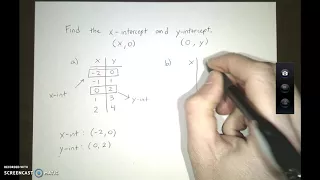 Find the x-intercept and y-intercept.
(x,0) (0, y)
a) x y
-2 0
-1 1
0 2
1 3
2 4
x-int
y-int
b) x
x-int : (-2,0)
y-int : (0,2)
RECORDED WITH
SCREENCAST MATIC